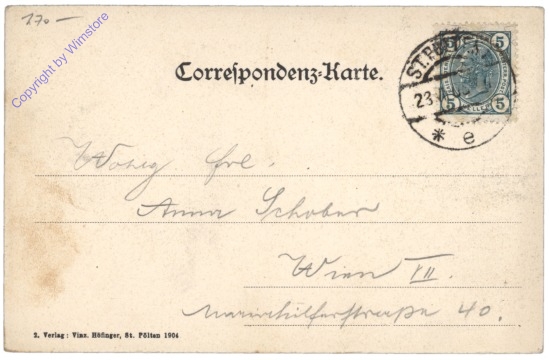 170 –
Copyright by Wimstore
Correspondenz-Karte.
5 5
ST. PÖLTEN
23
5 5
* e
frl.
Anna Schober
Wien VII.
Mariahilferstraße 40.
2. Verlag: Vinz. Höfinger, St. Pölten 1904